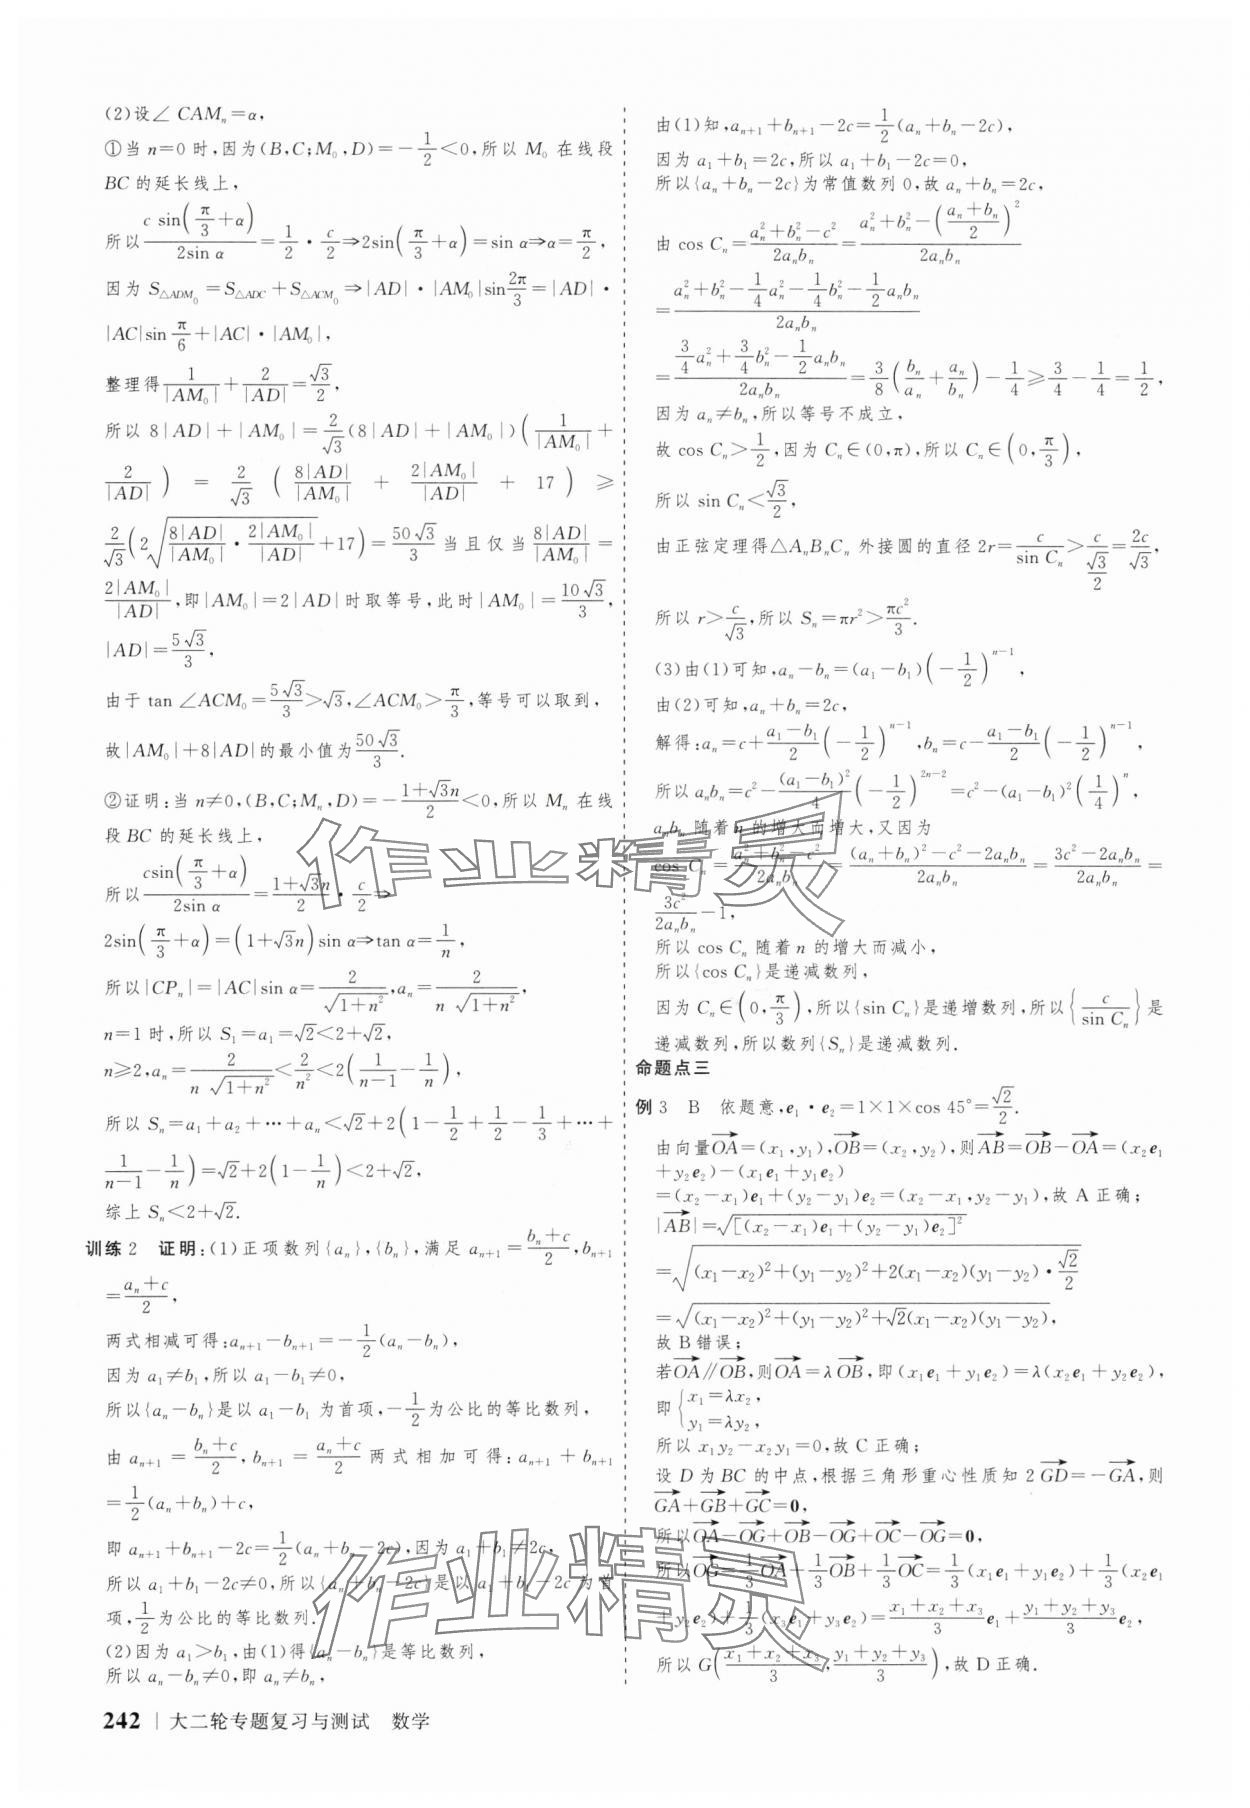 (2)设∠CAMₙ=α,
①当 n=0 时,因为(B,C;M₀,D)=-1/2<0,所以 M₀ 在线段
BC 的延长线上,
所以 c sin(π/3+α)/(2sin α)=1/2·c/2⇒2sin(π/3+α)=sin α⇒α=π/2,
因为 S△ADM₀=S△ADC+S△ACM₀⇒|AD|·|AM₀|sin 2π/3=|AD|·
|AC|sin π/6+|AC|·|AM₀|,
整理得 1/|AM₀|+2/|AD|=√3/2,
所以 8|AD|+|AM₀|=2/√3(8|AD|+|AM₀|)(1/|AM₀|+
2/|AD|)=2/√3(8|AD|/|AM₀|+2|AM₀|/|AD|+17)≥
2/√3(2√(8|AD|/|AM₀|·2|AM₀|/|AD|)+17)=50√3/3 当且仅当 8|AD|/|AM₀|=
2|AM₀|/|AD|,即|AM₀|=2|AD|时取等号,此时|AM₀|=10√3/3,
|AD|=5√3/3,
由于 tan∠ACM₀=5√3/3>√3,∠ACM₀>π/3,等号可以取到,
故|AM₀|+8|AD|的最小值为 50√3/3.
②证明:当 n≠0,(B,C;Mₙ,D)=-(1+√3n)/2<0,所以 Mₙ 在线
段 BC 的延长线上,
所以 csin(π/3+α)/(2sin α)=(1+√3n)/2·c/2⇒
2sin(π/3+α)=(1+√3n)sin α⇒tan α=1/n,
所以|CPₙ|=|AC|sin α=2/√(1+n²),aₙ=2/(n√(1+n²)),
n=1 时,所以 S₁=a₁=√2<2+√2,
n≥2,aₙ=2/(n√(1+n²))<2/n²<2(1/(n-1)-1/n),
所以 Sₙ=a₁+a₂+⋯+aₙ<√2+2(1-1/2+1/2-1/3+⋯+
1/(n-1)-1/n)=√2+2(1-1/n)<2+√2,
综上 Sₙ<2+√2.
训练 2 证明:(1)正项数列{aₙ},{bₙ},满足 aₙ₊₁=(bₙ+c)/2,bₙ₊₁
=(aₙ+c)/2,
两式相减可得:aₙ₊₁-bₙ₊₁=-1/2(aₙ-bₙ),
因为 a₁≠b₁,所以 a₁-b₁≠0,
所以{aₙ-bₙ}是以 a₁-b₁ 为首项,-1/2为公比的等比数列,
由 aₙ₊₁=(bₙ+c)/2,bₙ₊₁=(aₙ+c)/2 两式相加可得:aₙ₊₁+bₙ₊₁
=1/2(aₙ+bₙ)+c,
即 aₙ₊₁+bₙ₊₁-2c=1/2(aₙ+bₙ-2c),因为 a₁+b₁≠2c,
所以 a₁+b₁-2c≠0,所以{aₙ+bₙ-2c}是以 a₁+b₁-2c 为首
项,1/2为公比的等比数列.
(2)因为 a₁>b₁,由(1)得{aₙ-bₙ}是等比数列,
所以 aₙ-bₙ≠0,即 aₙ≠bₙ,
242 | 大二轮专题复习与测试 数学
由(1)知,aₙ₊₁+bₙ₊₁-2c=1/2(aₙ+bₙ-2c),
因为 a₁+b₁=2c,所以 a₁+b₁-2c=0,
所以{aₙ+bₙ-2c}为常值数列 0,故 aₙ+bₙ=2c,
由 cos Cₙ=(aₙ²+bₙ²-c²)/(2aₙbₙ)=(aₙ²+bₙ²-((aₙ+bₙ)/2)²)/(2aₙbₙ)
=(aₙ²+bₙ²-1/4aₙ²-1/4bₙ²-1/2aₙbₙ)/(2aₙbₙ)
=(3/4aₙ²+3/4bₙ²-1/2aₙbₙ)/(2aₙbₙ)=3/8(bₙ/aₙ+aₙ/bₙ)-1/4≥3/4-1/4=1/2,
因为 aₙ≠bₙ,所以等号不成立,
故 cos Cₙ>1/2,因为 Cₙ∈(0,π),所以 Cₙ∈(0,π/3),
所以 sin Cₙ<√3/2,
由正弦定理得△AₙBₙCₙ 外接圆的直径 2r=c/sin Cₙ>c/(√3/2)=2c/√3,
所以 r>c/√3,所以 Sₙ=πr²>πc²/3.
(3)由(1)可知,aₙ-bₙ=(a₁-b₁)(-1/2)ⁿ⁻¹,
由(2)可知,aₙ+bₙ=2c,
解得:aₙ=c+(a₁-b₁)/2(-1/2)ⁿ⁻¹,bₙ=c-(a₁-b₁)/2(-1/2)ⁿ⁻¹,
所以 aₙbₙ=c²-(a₁-b₁)²/4(-1/2)²ⁿ⁻²=c²-(a₁-b₁)²(1/4)ⁿ,
aₙbₙ 随着 n 的增大而增大,又因为
cos Cₙ=(aₙ²+bₙ²-c²)/(2aₙbₙ)=((aₙ+bₙ)²-c²-2aₙbₙ)/(2aₙbₙ)=(3c²-2aₙbₙ)/(2aₙbₙ)=
3c²/(2aₙbₙ)-1,
所以 cos Cₙ 随着 n 的增大而减小,
所以{cos Cₙ}是递减数列,
因为 Cₙ∈(0,π/3),所以{sin Cₙ}是递增数列,所以{c/sin Cₙ}是
递减数列,所以数列{Sₙ}是递减数列.
命题点三
例 3 B 依题意,e₁·e₂=1×1×cos 45°=√2/2.
由向量OA→=(x₁,y₁),OB→=(x₂,y₂),则AB→=OB→-OA→=(x₂e₁
+y₂e₂)-(x₁e₁+y₁e₂)
=(x₂-x₁)e₁+(y₂-y₁)e₂=(x₂-x₁,y₂-y₁),故 A 正确;
|AB→|=√([(x₂-x₁)e₁+(y₂-y₁)e₂]²)
=√((x₁-x₂)²+(y₁-y₂)²+2(x₁-x₂)(y₁-y₂)·√2/2)
=√((x₁-x₂)²+(y₁-y₂)²+√2(x₁-x₂)(y₁-y₂)),
故 B 错误;
若OA→∥OB→,则OA→=λOB→,即(x₁e₁+y₁e₂)=λ(x₂e₁+y₂e₂),
即{x₁=λx₂,
y₁=λy₂,
所以 x₁y₂-x₂y₁=0,故 C 正确;
设 D 为 BC 的中点,根据三角形重心性质知 2GD→=-GA→,则
GA→+GB→+GC→=0,
所以OA→-OG→+OB→-OG→+OC→-OG→=0,
所以OG→=1/3OA→+1/3OB→+1/3OC→=1/3(x₁e₁+y₁e₂)+1/3(x₂e₁
+y₂e₂)+1/3(x₃e₁+y₃e₂)=(x₁+x₂+x₃)/3e₁+(y₁+y₂+y₃)/3e₂,
所以 G((x₁+x₂+x₃)/3,(y₁+y₂+y₃)/3),故 D 正确.
作业精灵
作业精灵